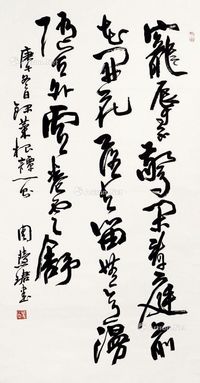 寵辱不驚閑看庭前
花開花落去留無意漫
隨天外雲卷雲舒
冬日錄菜根譚
周慧珺書